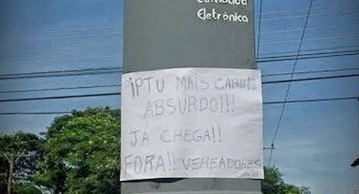 Eletrônica
IPTU MAIS CARO!!
ABSURDO!!!
JÁ CHEGA!!
FORA!! VEREADORES